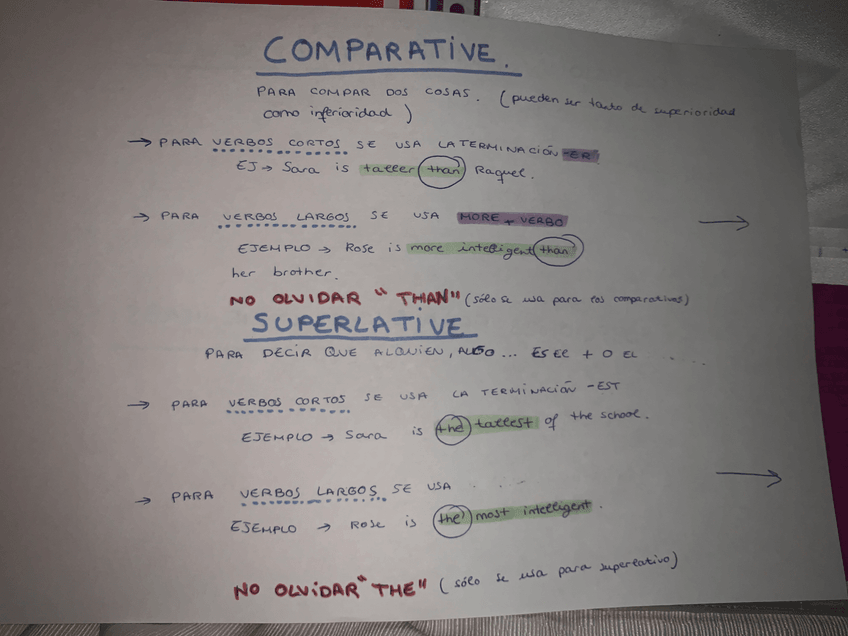 COMPARATIVE.
PARA COMPAR DOS COSAS. (pueden ser tanto de superioridad
como inferioridad)
→ PARA VERBOS CORTOS SE USA LA TERMINACIÓN -ER
EJ → Sara is taller than Raquel.
→ PARA VERBOS LARGOS SE USA MORE + VERBO →
EJEMPLO → Rose is more intelligent than
her brother.
NO OLVIDAR "THAN" (sólo se usa para los comparativos)
SUPERLATIVE
PARA DECIR QUE ALQUIEN, ALGO... ES EL + O EL . . . .
→ PARA VERBOS CORTOS SE USA LA TERMINACIÓN -EST
EJEMPLO → Sara is the tallest of the school.
→ PARA VERBOS LARGOS SE USA . . . →
EJEMPLO → Rose is the most intelligent.
NO OLVIDAR "THE" (sólo se usa para superlativo)